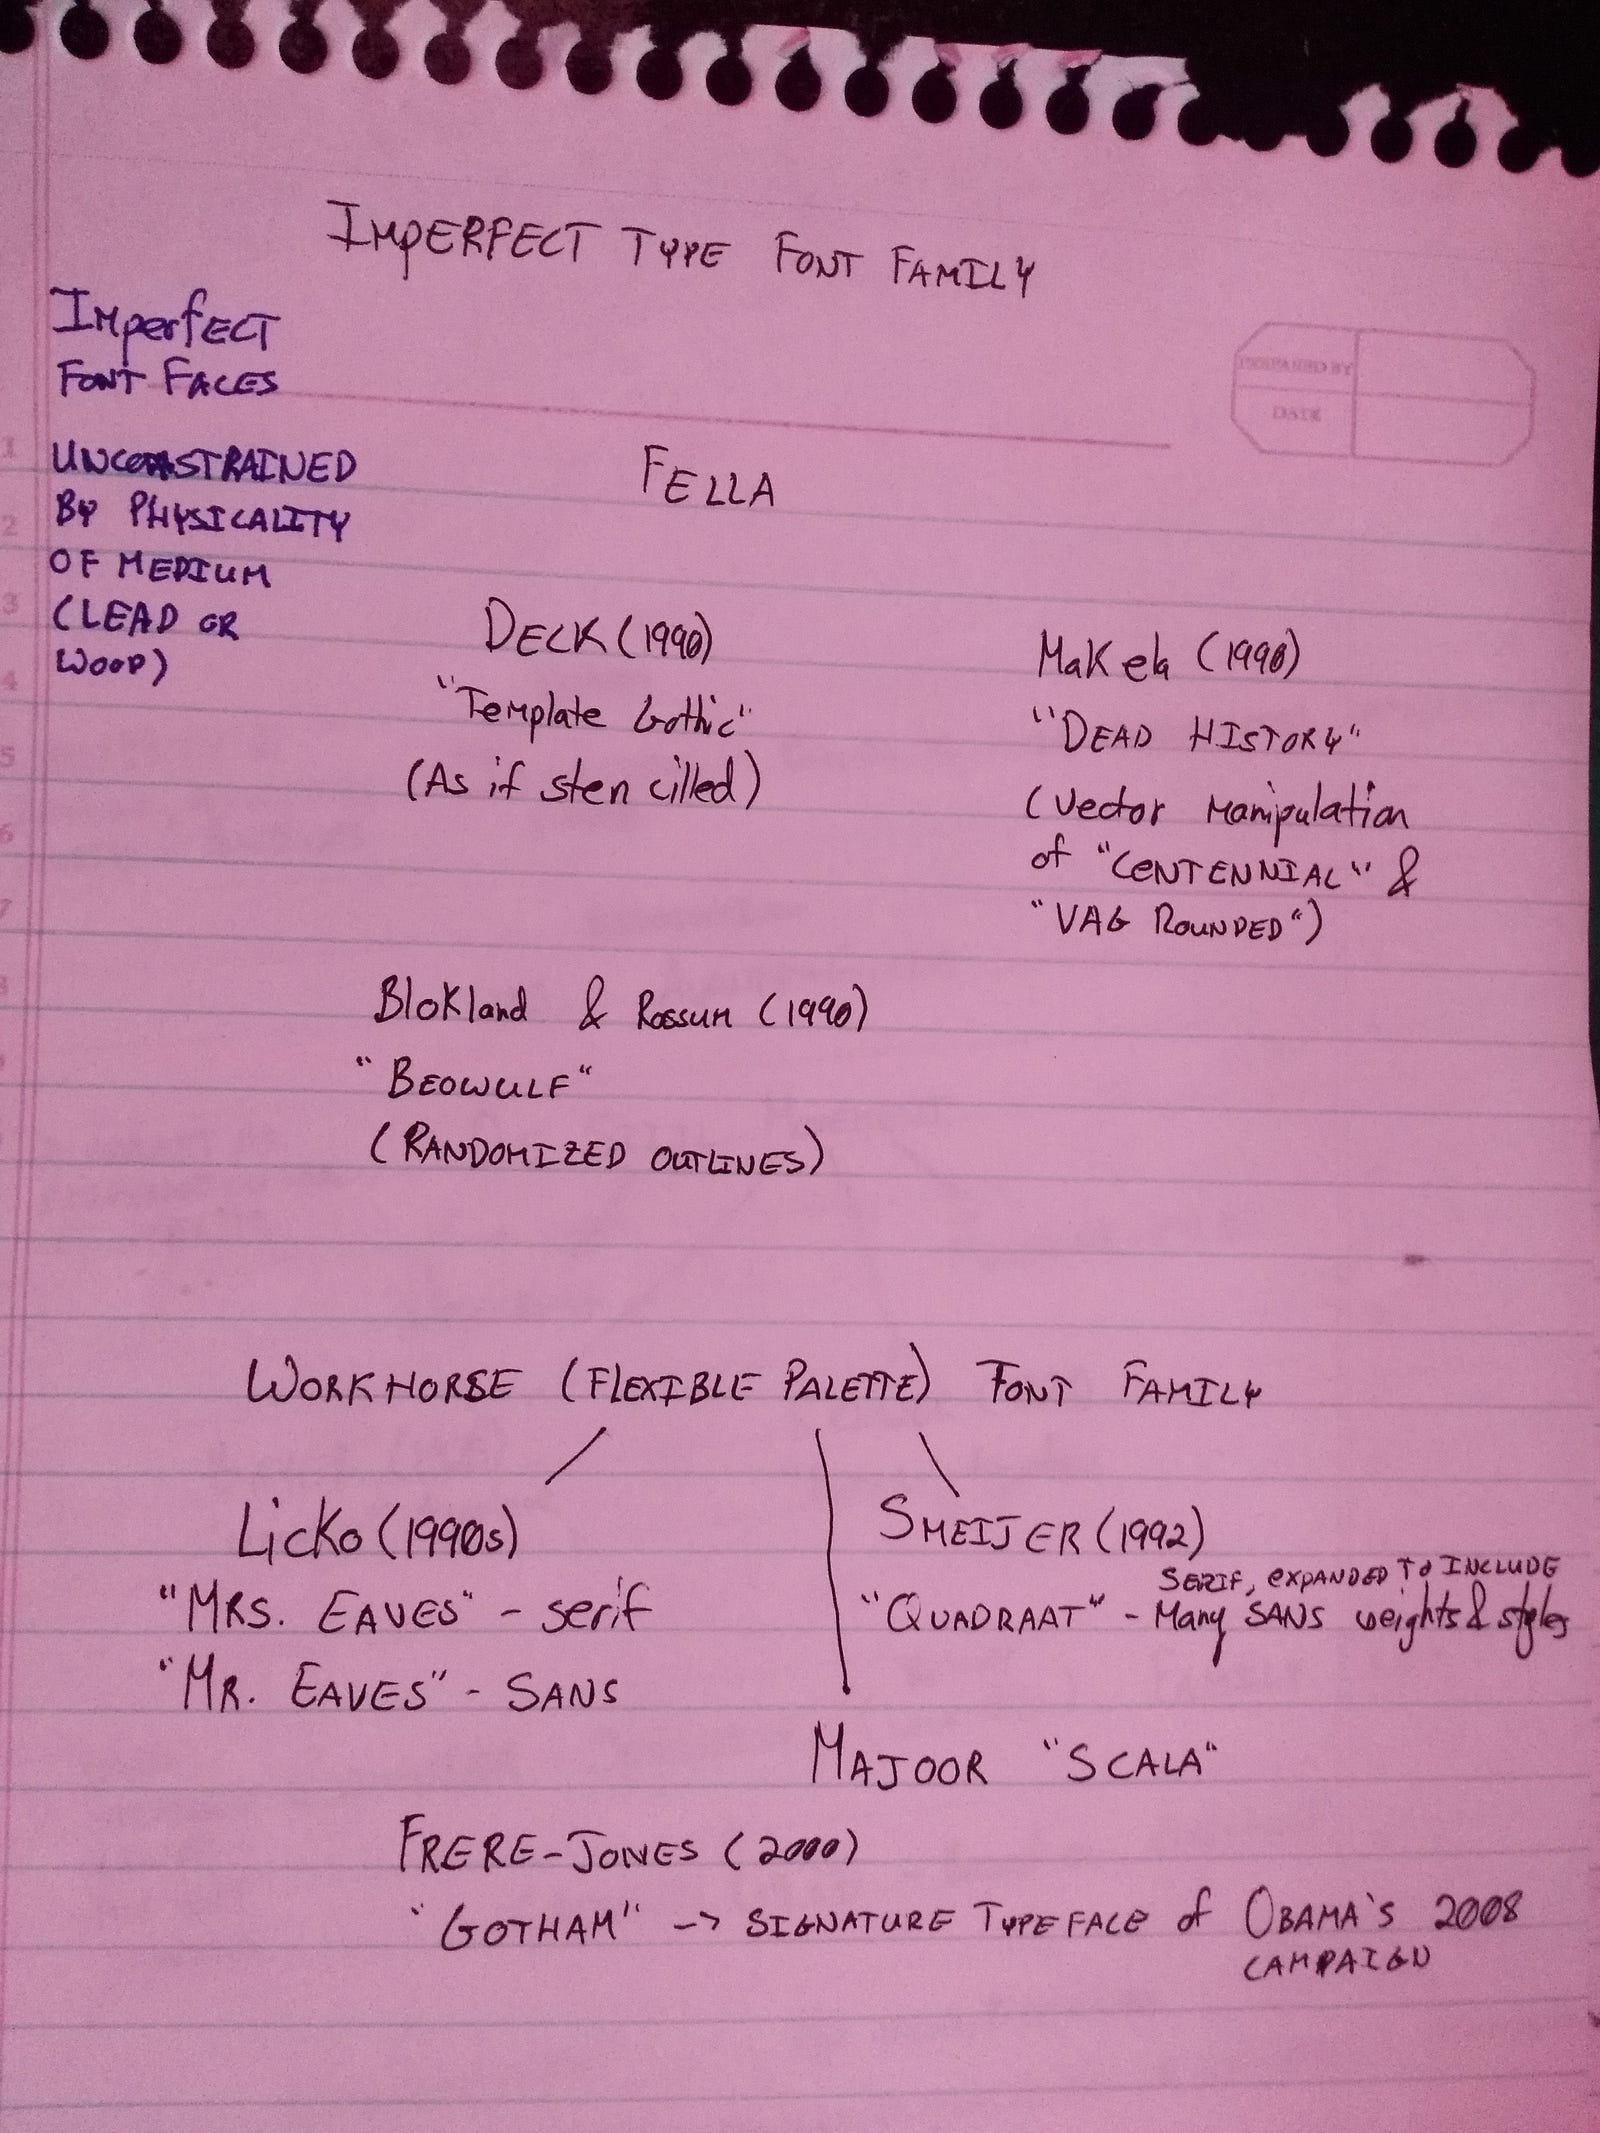 IMPERFECT TYPE FONT FAMILY
Imperfect
FONT FACES
UNCONSTRAINED
BY PHYSICALITY
OF MEDIUM
(LEAD OR
WOOD)
PREPARED BY
DATE
FELLA
DECK (1990)
"Template Gothic"
(As if stencilled)
Makela (1990)
"DEAD HISTORY"
(vector manipulation
of "CENTENNIAL" &
"VAG ROUNDED")
Blokland & Rossum (1990)
"BEOWULF"
(RANDOMIZED OUTLINES)
WORKHORSE (FLEXIBLE PALETTE) FONT FAMILY
Licko (1990s)
"MRS. EAVES" - serif
"MR. EAVES" - SANS
SMEIJER (1992)
SERIF, EXPANDED TO INCLUDE
"QUADRAAT" - Many SANS weights & styles
MAJOOR "SCALA"
FRERE-JONES (2000)
"GOTHAM" -> SIGNATURE TYPEFACE of OBAMA'S 2008
CAMPAIGN
1
2
3
4
5
6
7
8